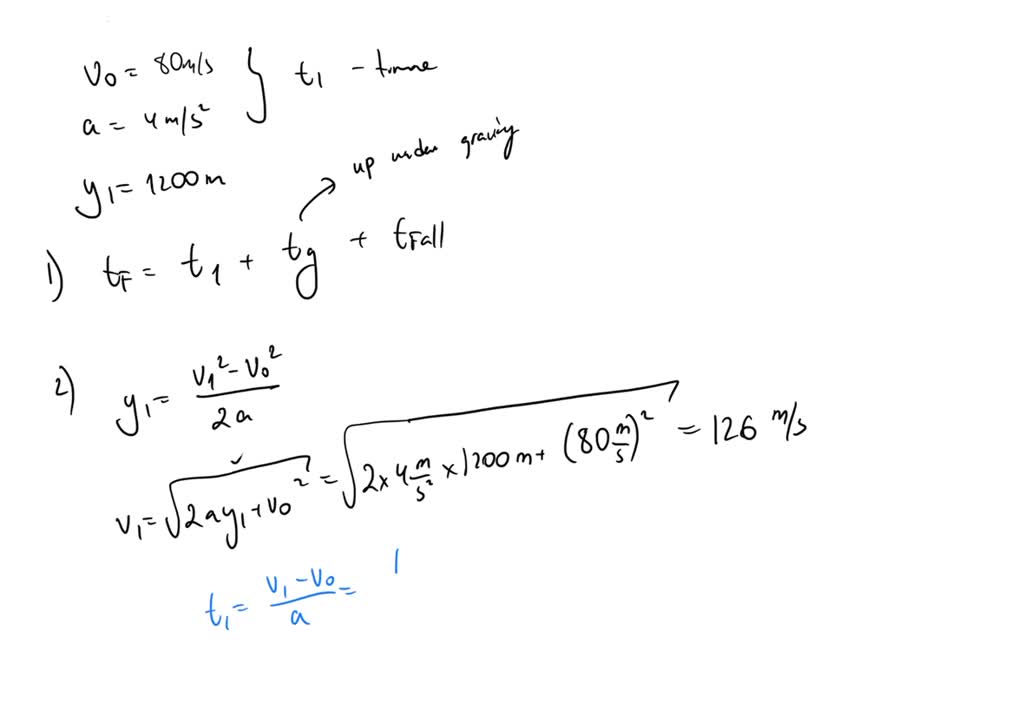 v₀ = 80 m/s } t₁ - time
a = 4 m/s²
y₁ = 1200 m
up under gravity
1) t_F = t₁ + t_g + t_Fall
2) y₁ = (v₁² - v₀²) / 2a
v₁ = √(2ay₁ + v₀²) = √(2 × 4 m/s² × 1200 m + (80 m/s)²) = 126 m/s
t₁ = (v₁ - v₀) / a =